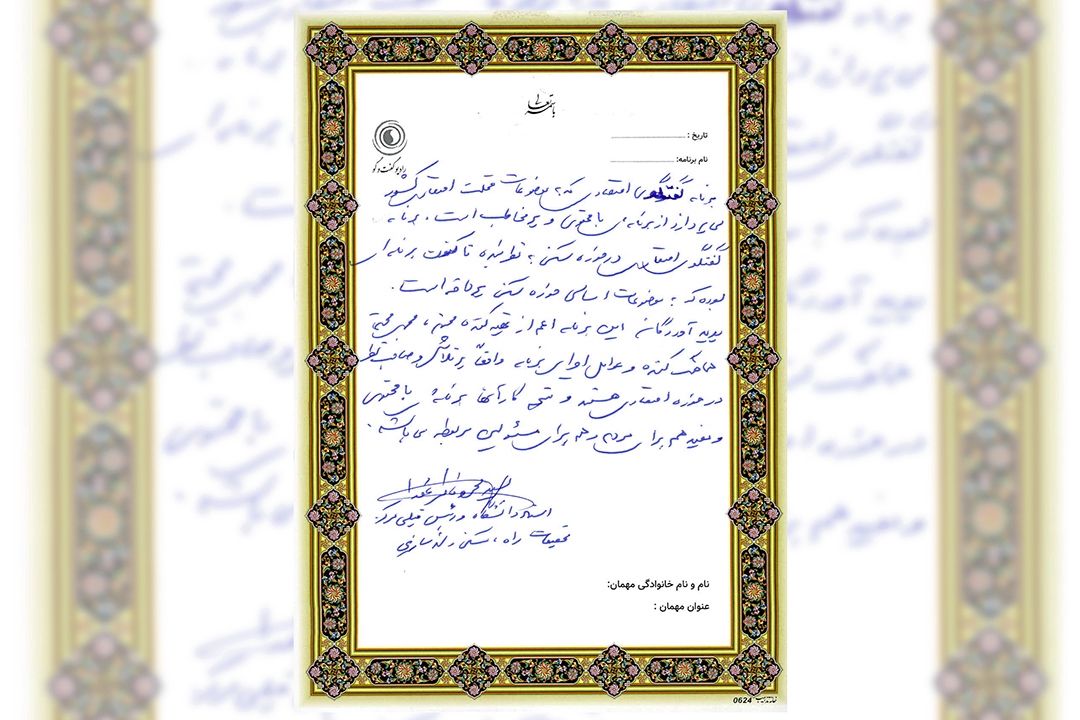 باسمه تعالی
تاریخ :
نام برنامه:
رادیو گفت و گو
برنامه گفتگوی اقتصادی که به موضوعات مختلف اقتصادی کشور
می پردازد از برنامه های با محتوی و پر مخاطب است. برنامه
گفتگوی اقتصادی در حوزه مسکن به نظر بنده تا کنون برنامه ای
بوده که به موضوعات اساسی حوزه مسکن پرداخته است.
پدید آورندگان این برنامه اعم از تهیه کننده محترم، مجری محترم
هماهنگ کننده و عوامل اجرای برنامه واقعاً پر تلاش و صاحب نظر
در حوزه اقتصادی هستند و نتیجه کار آنها برنامه ای با محتوی
و مفید هم برای مردم و هم برای مسئولین مربوطه می باشد.
استاد دانشگاه و رئیس قبلی مرکز
تحقیقات راه، مسکن و شهرسازی
نام و نام خانوادگی مهمان:
عنوان مهمان :
0624